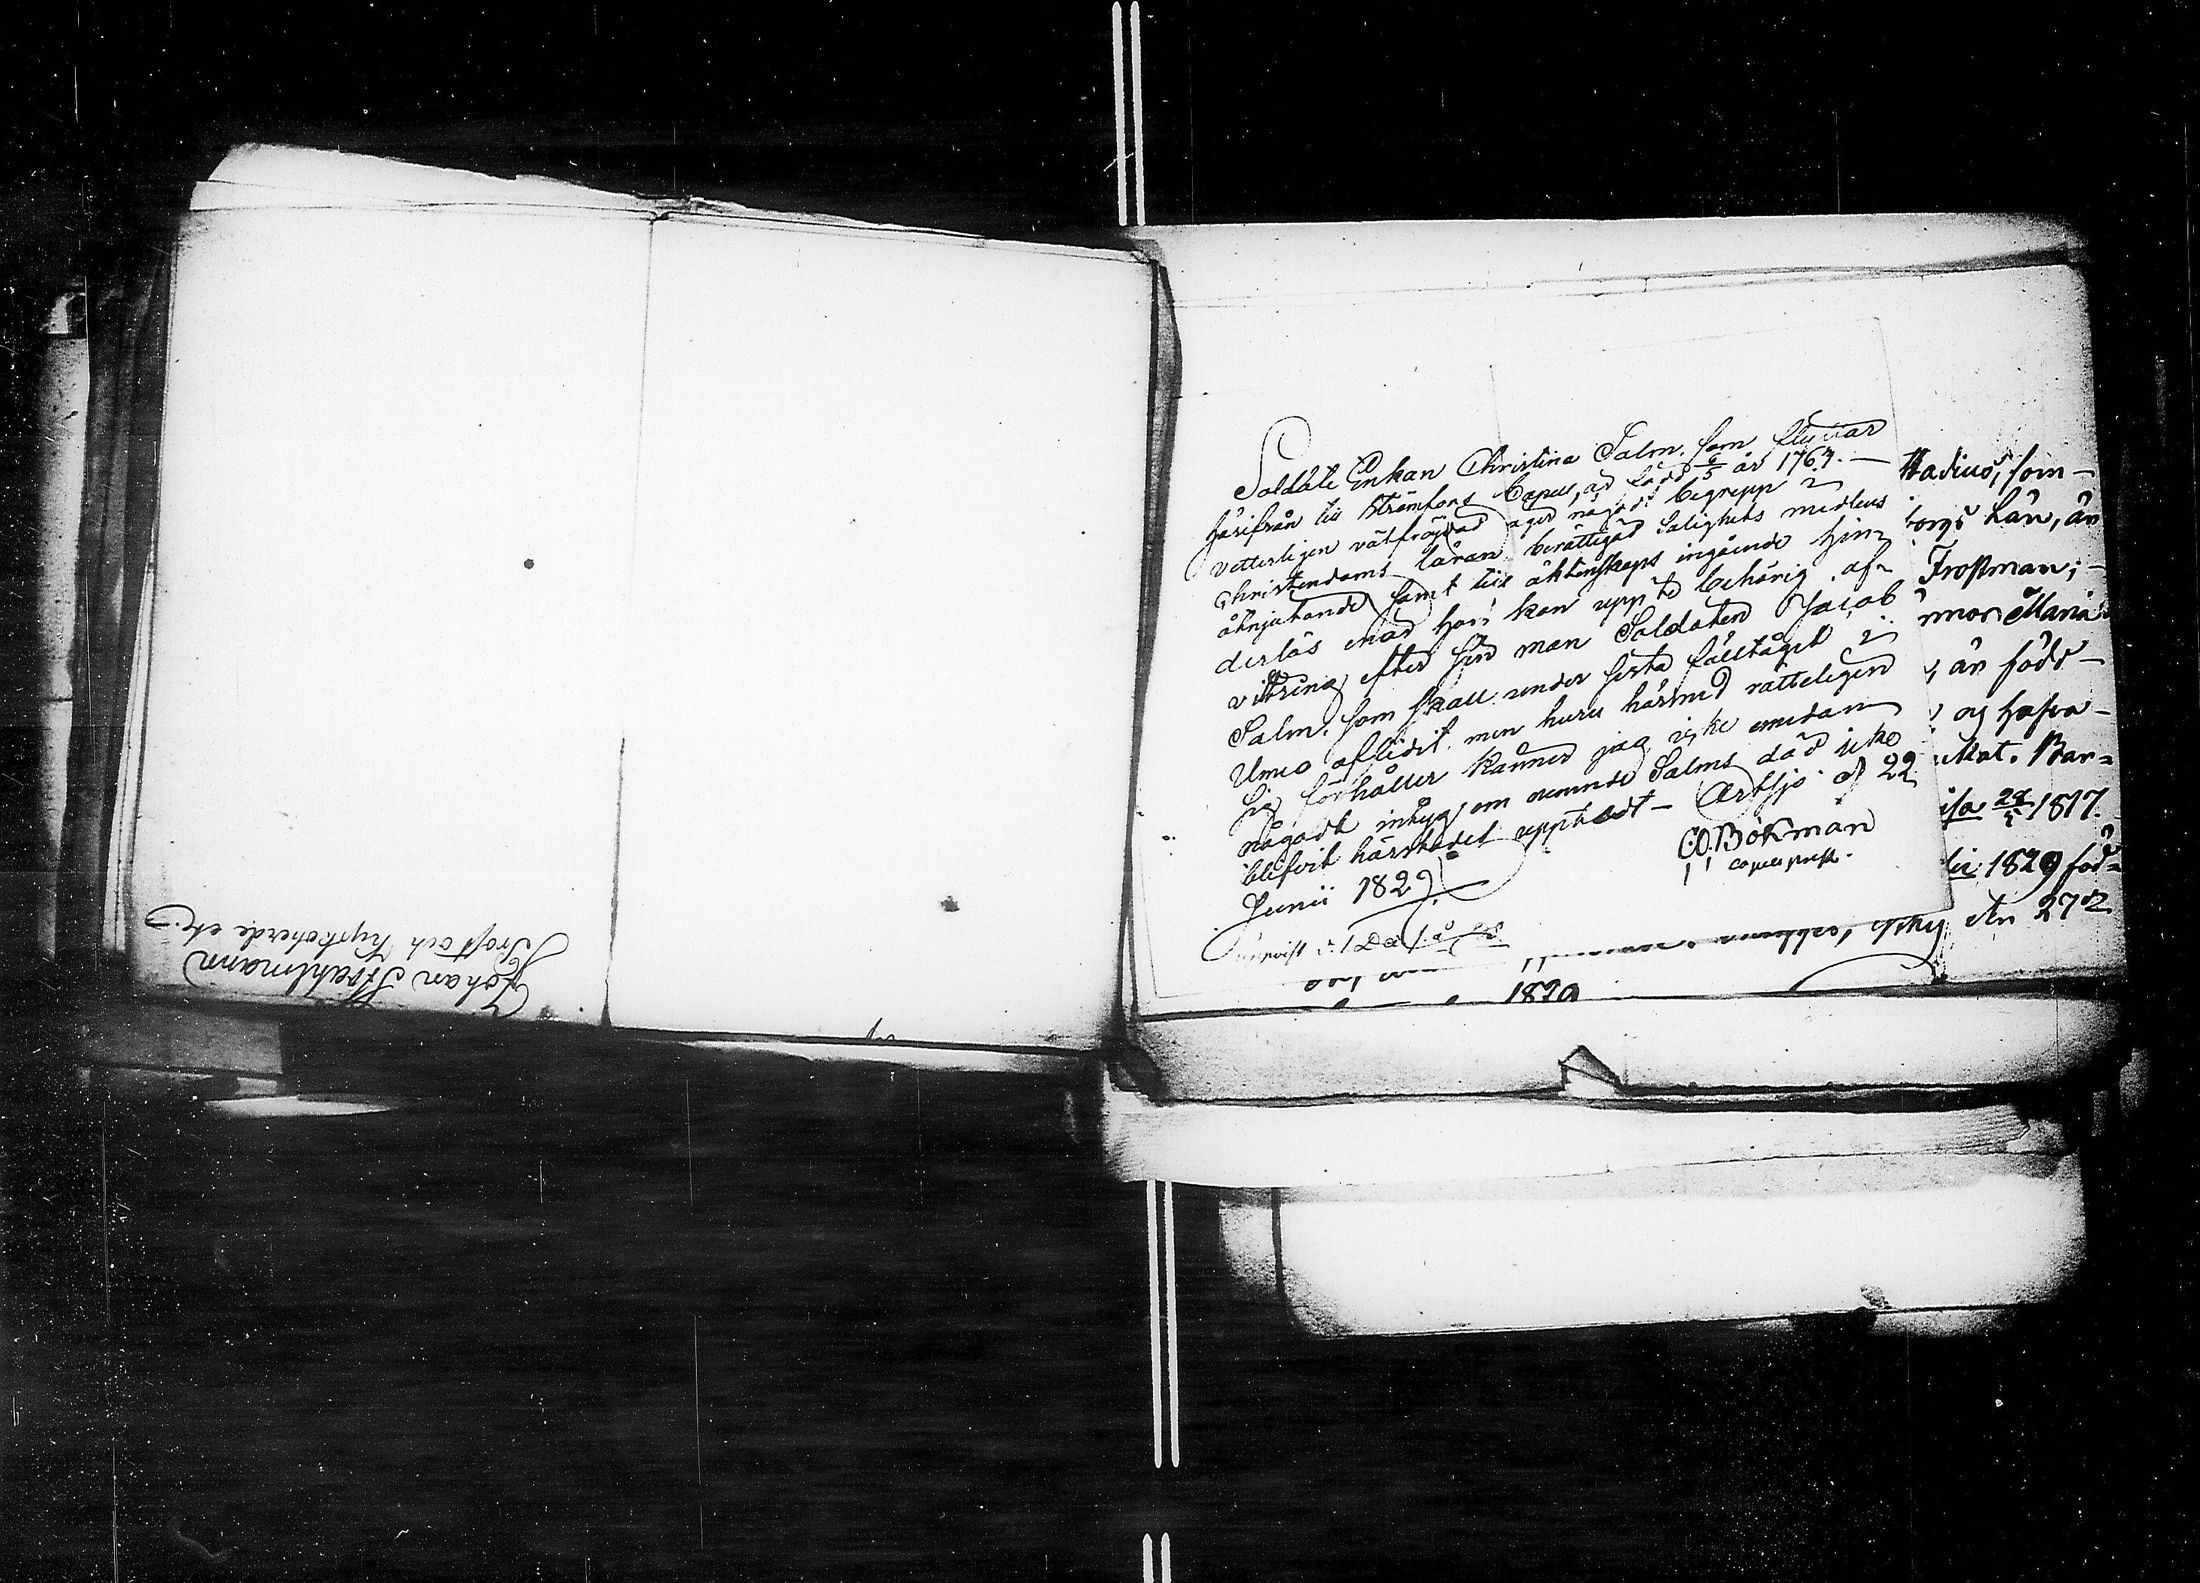 Johan Stråhlmann
Prost och Kyrkoherde etc.
Soldats Enkan Christina Salm, som flyttar
härifrån till Strömfors Capell, är född 6/5 år 1764. —
vetterligen välfräjdad äger någodt begrepp i
Christendoms läran berättigad Salighets medlens
åtnjutande samt till äktenskaps ingående hin=
derlös enär hon kan uppte behörig af=
vittring efter sin man Soldaten Jacob
Salm, som skall under sista fälttåget i
Umeo aflidit, men huru härmed rätteligen
sig förhåller känner jag icke emedan
någodt intyg om nemnde Salms död icke
blifvit härstädes uppteedt — Artsjö d 22
Junii 1829.
C.O. Bökman
capell pred.
Stadius, som —
borgs Län, är
Trossman; —
Maria
, är född —
och hafva —
Mat. Bar=
isa 28/5 1817.
1829 föd=
No 272
1829